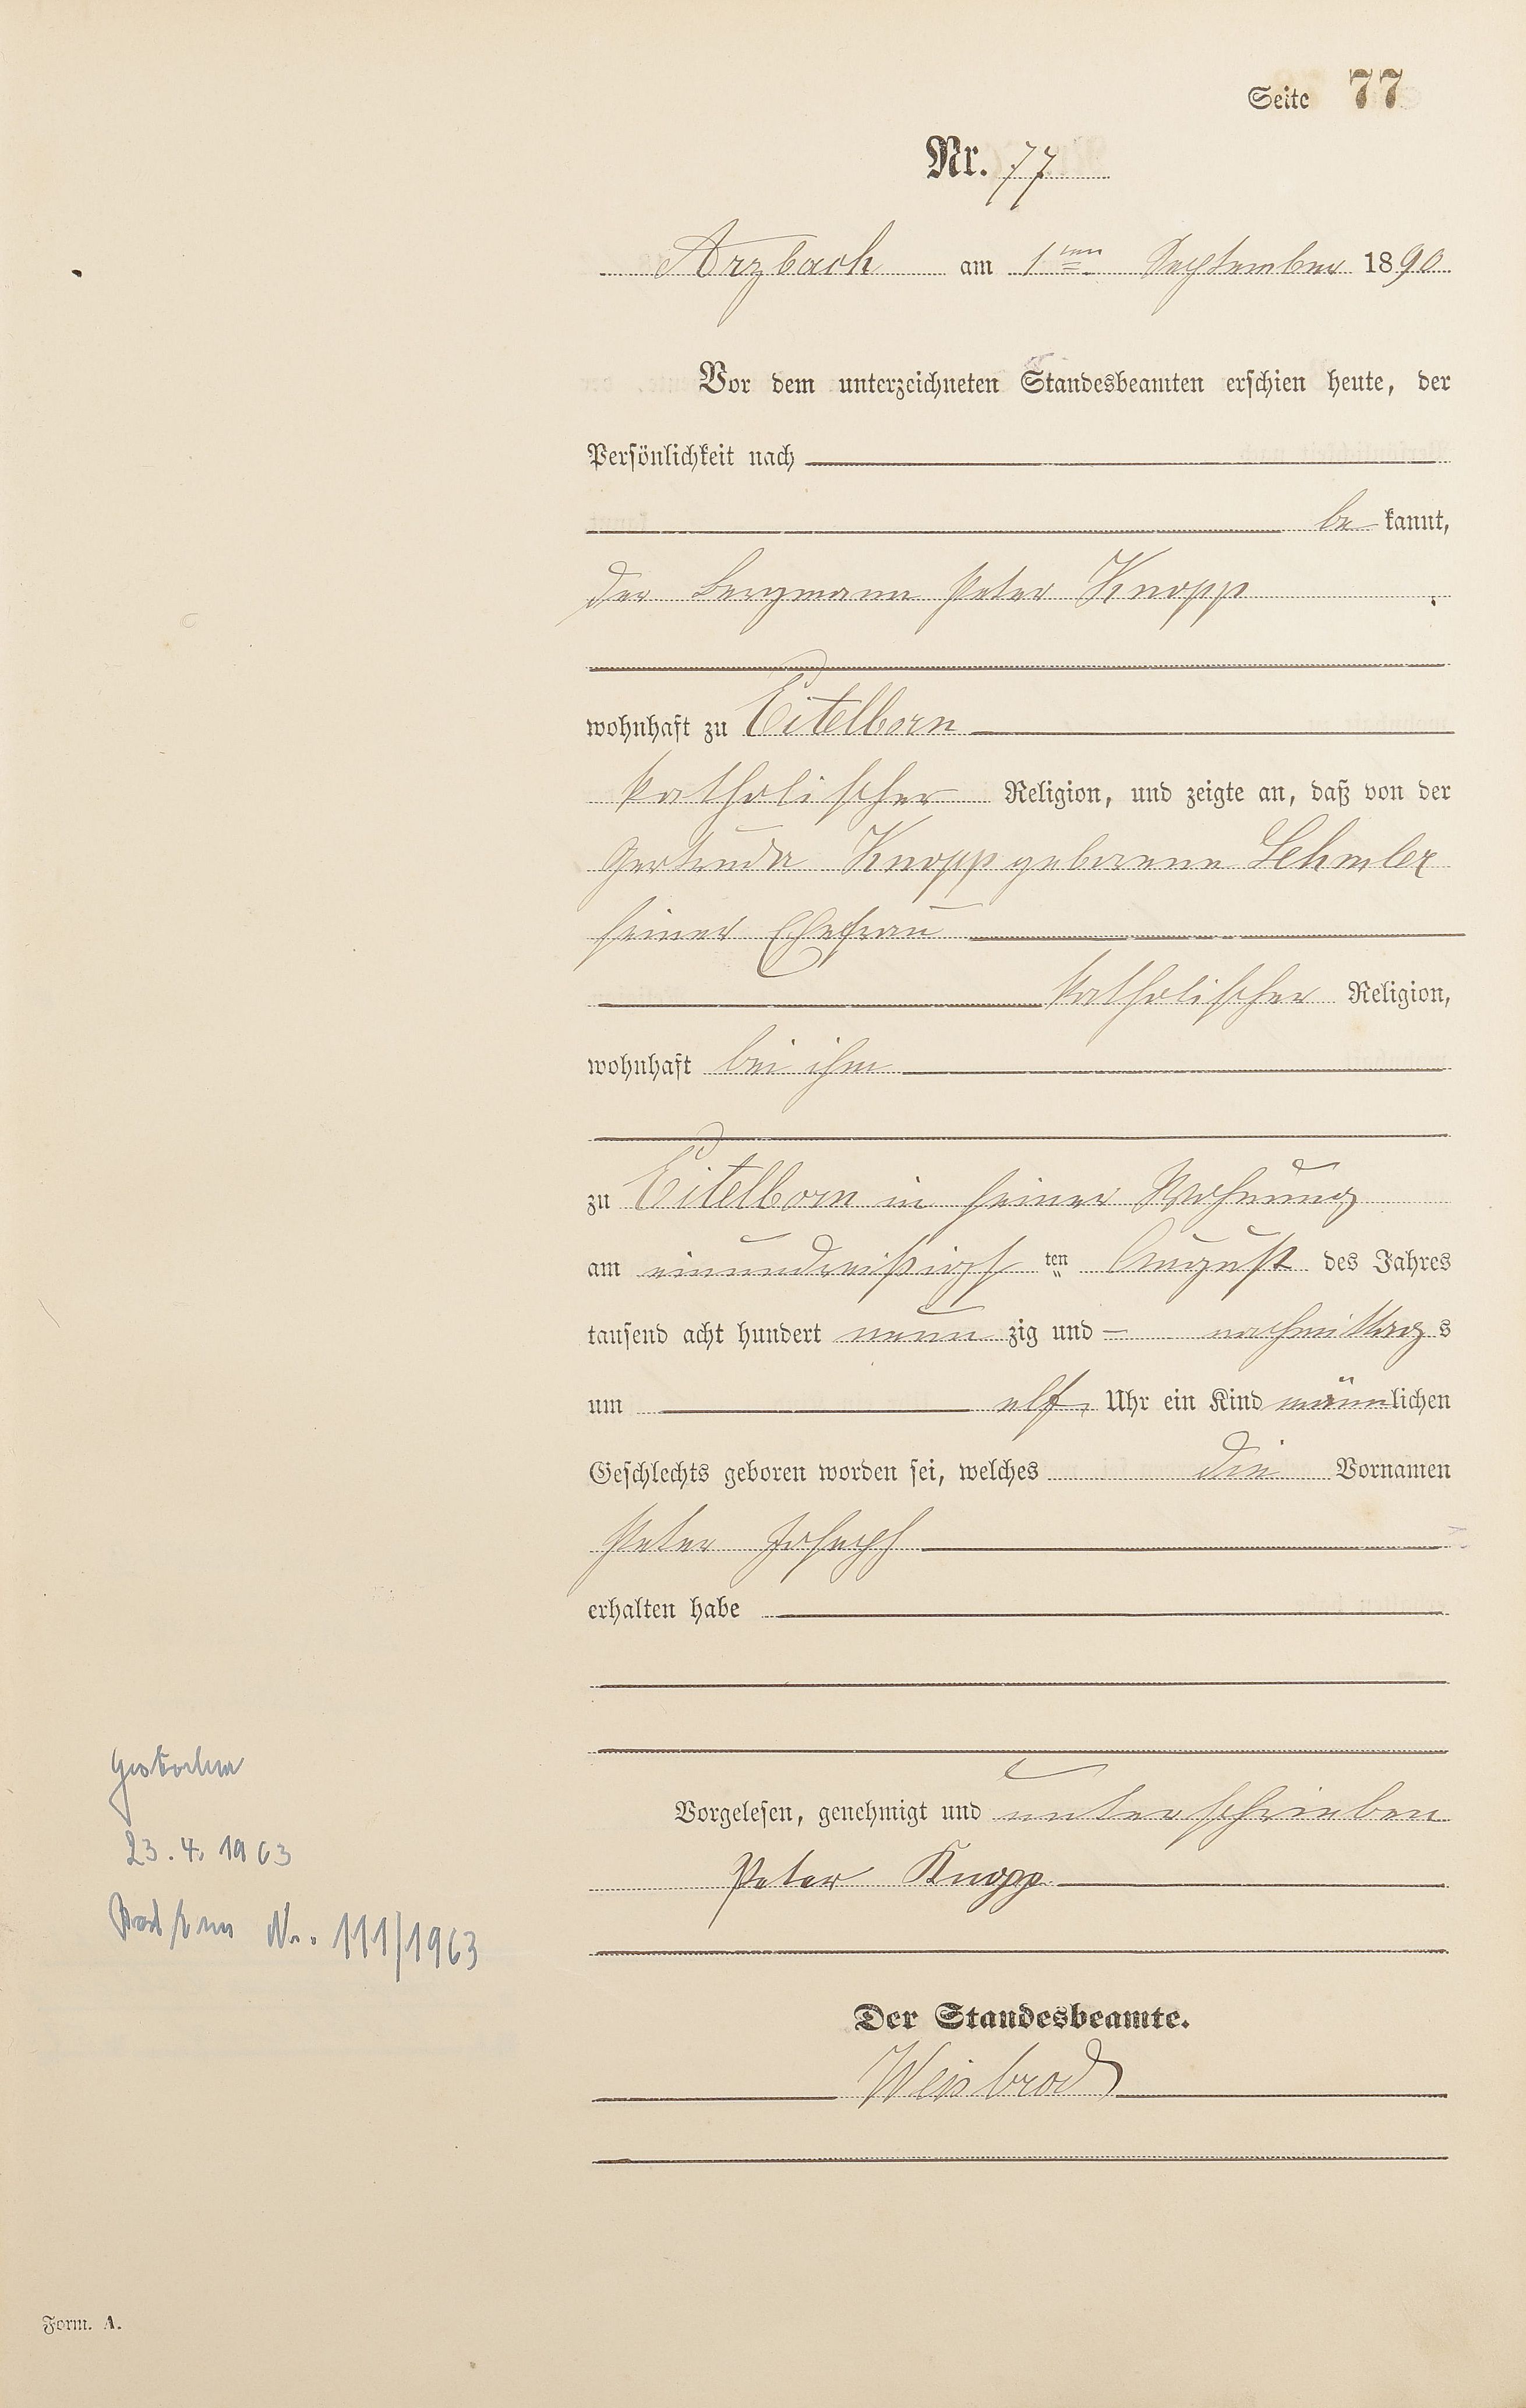 Seite 77
Nr. 77
Arzbach am 1ten September 1890
Vor dem unterzeichneten Standesbeamten erschien heute, der
Persönlichkeit nach
be kannt,
der Bergmann Peter Knopp
wohnhaft zu Eitelborn
katholischer Religion, und zeigte an, daß von der
Gertruda Knopp geborene Lehmler
seiner Ehefrau
katholischer Religion,
wohnhaft bei ihm
zu Eitelborn in seiner Wohnung
am einunddreißigsten August des Jahres
tausend acht hundert neun zig und – nachmittags
um elf Uhr ein Kind männlichen
Geschlechts geboren worden sei, welches die Vornamen
Peter Joseph
erhalten habe
Vorgelesen, genehmigt und unterschrieben
Peter Knopp
Der Standesbeamte.
Weisbrod
Gestorben
23.4.1963
Bad Ems Nr. 111/1963
Form. A.